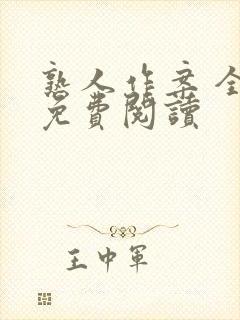 熟人作案全
免費閱讀
王中軍